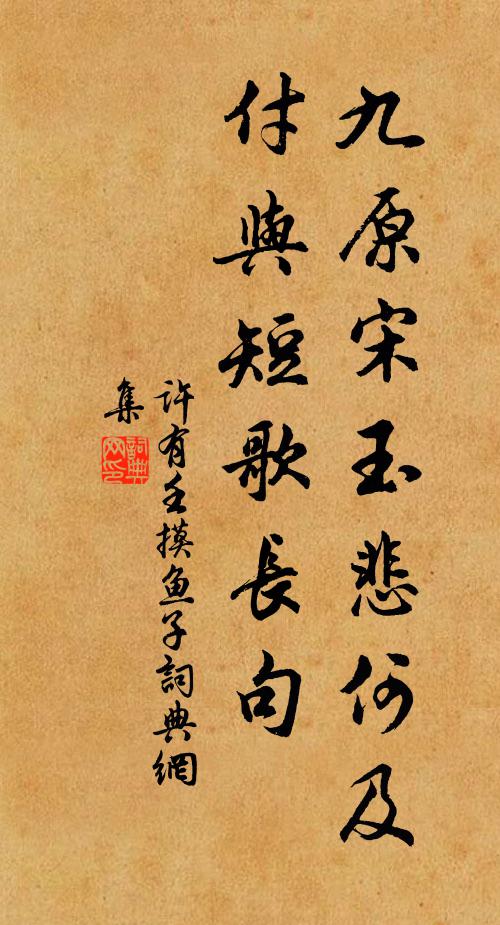 九原宋玉悲何及
付與短歌長句
許有壬摸魚子詞典網
集
詞典網印